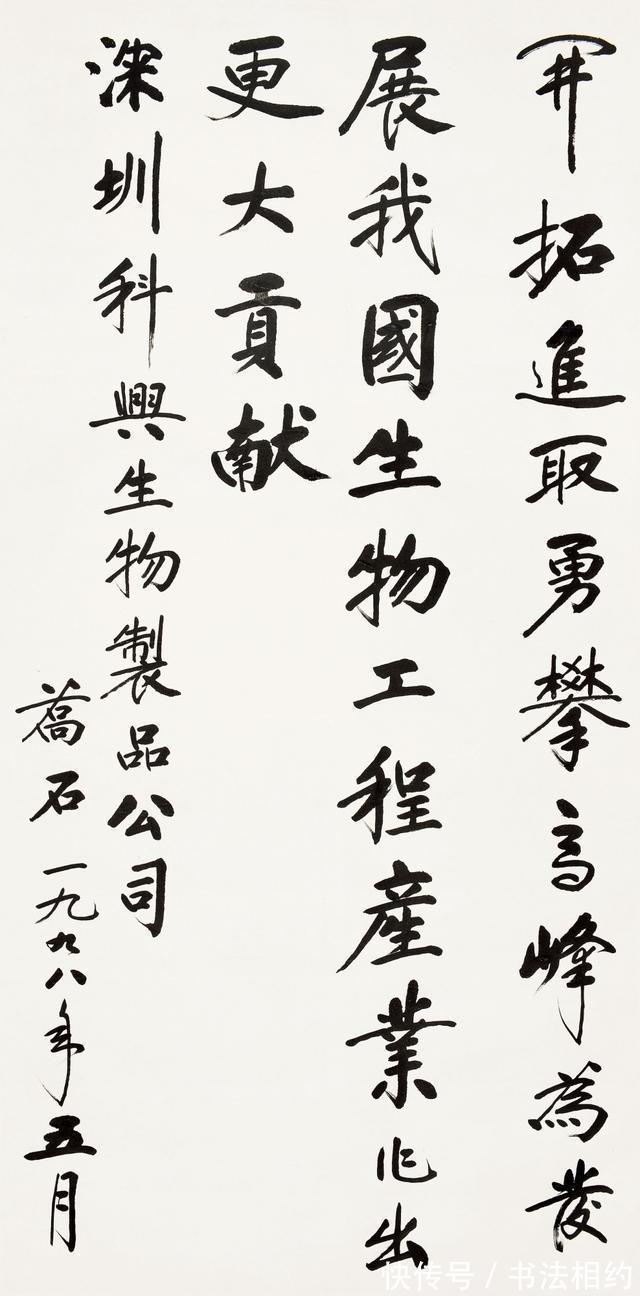 開拓進取勇攀高峰為發
展我國生物工程產業作出
更大貢献
深圳科興生物製品公司
喬石一九九八年五月
快传号/书法相约